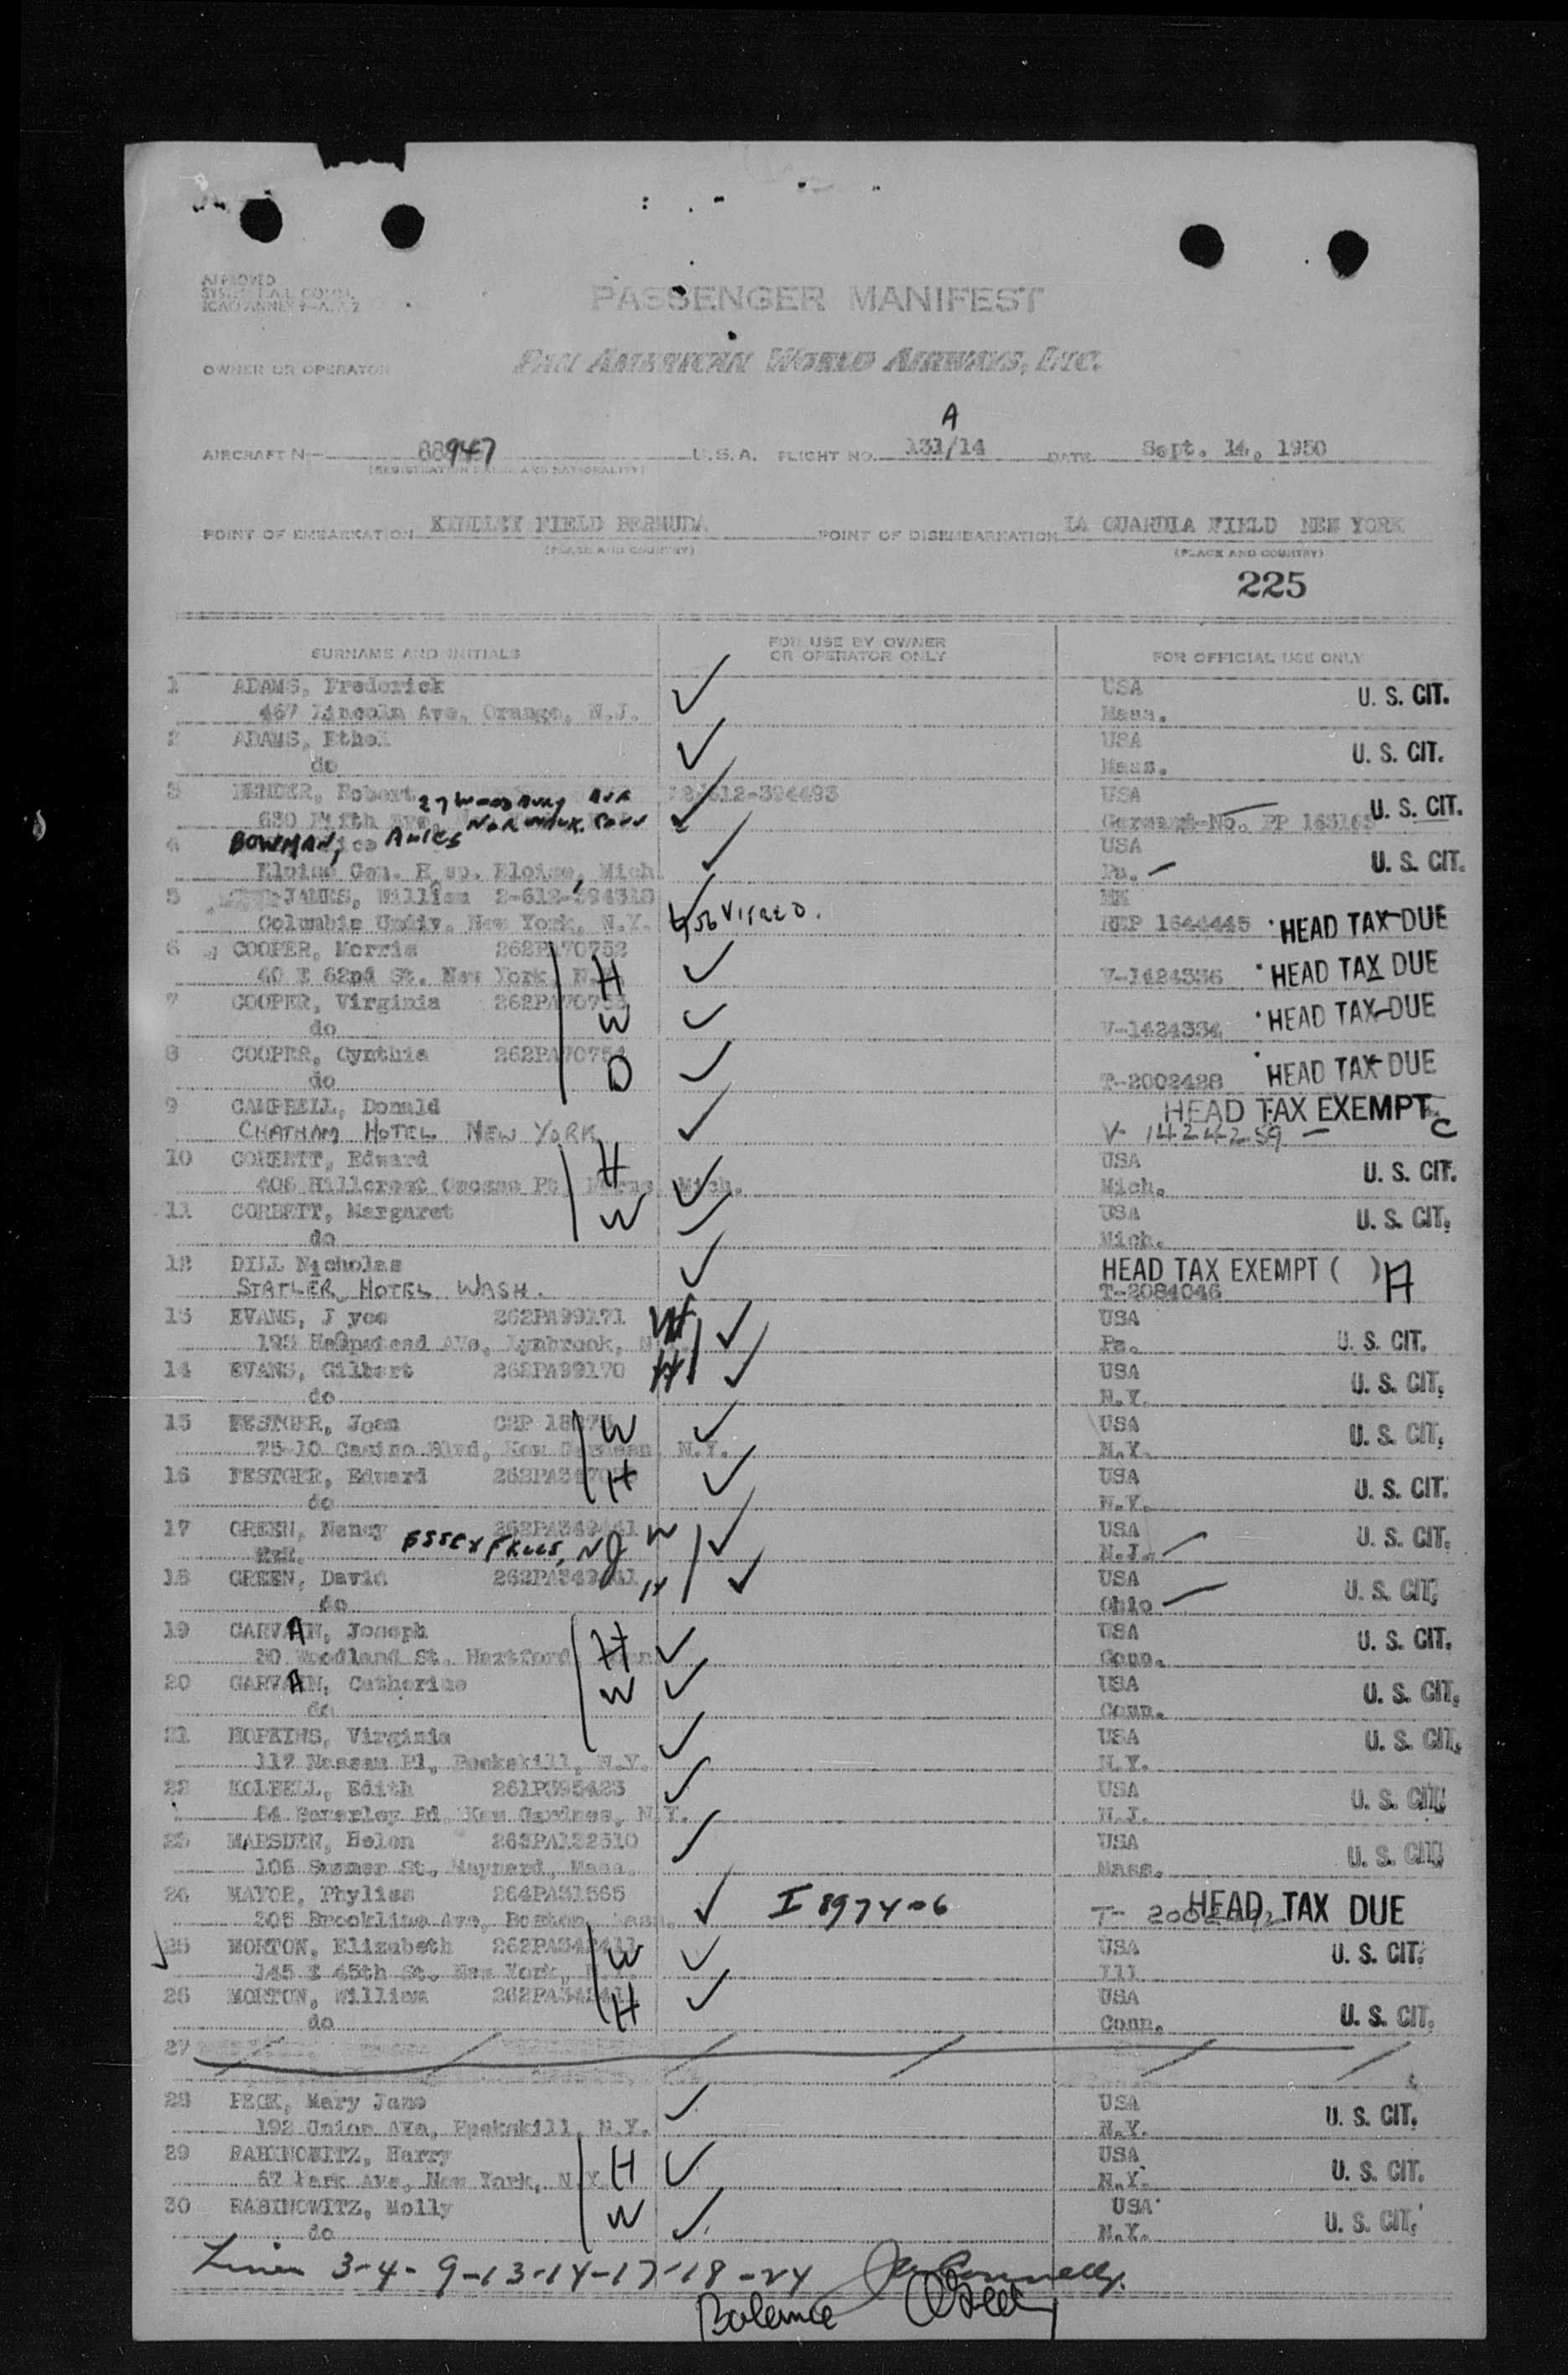 APPROVED
PASSENGER MANIFEST
OWNER OR OPERATOR PAN AMERICAN WORLD AIRWAYS, INC.
A
AIRCRAFT N- 88947 U.S.A. FLIGHT NO. 131/14 DATE Sept. 14, 1950
(REGISTRATION MARK AND NATIONALITY)
POINT OF EMBARKATION KINDLEY FIELD BERMUDA POINT OF DISEMBARKATION LA GUARDIA FIELD NEW YORK
(PLACE AND COUNTRY) (PLACE AND COUNTRY)
225
SURNAME AND INITIALS FOR USE BY OWNER OR OPERATOR ONLY FOR OFFICIAL USE ONLY
1 ADAMS, Frederick USA U. S. CIT.
467 Lincoln Ave, Orange, N.J. Mass.
2 ADAMS, Ethel USA U. S. CIT.
do Mass.
3 BENDER, Robert 27 Woodbury Ave 612-394493 USA U. S. CIT.
Norwalk Conn No. PP
4 BOWMAN, USA U. S. CIT.
Eloise Gen. Hosp. Eloise, Mich. Pa.
5 JAMES, William 2-612-394318
Columbia Univ, New York, N.Y. REP 1644445 HEAD TAX DUE
6 COOPER, Morris 262PA70752 H
40 E 62nd St. New York, N. V-1424336 HEAD TAX DUE
7 COOPER, Virginia 262PA70753 W
do V-1424334 HEAD TAX DUE
8 COOPER, Cynthia 262PA70754 D
do T-2002428 HEAD TAX DUE
9 CAMPBELL, Donald HEAD TAX EXEMPT C
CHATHAM HOTEL NEW YORK V- 1424259
10 CORBETT, Edward H USA U. S. CIT.
406 Hillcrest Grosse Pt. Mich. Mich.
11 CORBETT, Margaret W USA U. S. CIT.
do Mich.
12 DILL Nicholas HEAD TAX EXEMPT ( ) H
STATLER HOTEL WASH. T-2084046
13 EVANS, J yce 262PA99171 W USA
123 Hempstead Ave, Lynbrook, N Pa. U. S. CIT.
14 EVANS, Gilbert 262PA99170 H USA U. S. CIT.
do N.Y.
15 FESTGER, Joan W USA U. S. CIT.
75-10 Casino Blvd, Kew Gardens, N.Y. N.Y.
16 FESTGER, Edward H USA U. S. CIT.
do N.Y.
17 GREEN, Nancy 262PA349441 W USA U. S. CIT.
ESSEX FELLS, NJ N.J.
18 GREEN, David H USA U. S. CIT.
do Ohio
19 GARVAN, Joseph H USA U. S. CIT.
Woodland St. Hartford, Conn.
20 GARVAN, Catherine W USA U. S. CIT.
do Conn.
21 HOPKINS, Virginia USA U. S. CIT.
117 Nassau Pl, Peekskill, N.Y. N.Y.
22 KOLBELL, Edith 261P595423 USA U. S. CIT.
84 Beverley Rd, Kew Gardens, N.Y. N.J.
23 MARSDEN, Helen 263PA132510 USA U. S. CIT.
108 Summer St., Maynard, Mass. Mass.
24 MAYOR, Phyliss 264PA31565 I 8974-6 HEAD TAX DUE
305 Brookline Ave, Boston, Mass. T-
25 MORTON, Elizabeth W USA U. S. CIT.
145 E 45th St. New York, Ill
26 MORTON, William H USA
do Conn. U. S. CIT.
27
28 PECK, Mary Jane USA U. S. CIT.
192 Union Ave, Peekskill, N.Y. N.Y.
29 RABINOWITZ, Harry H USA U. S. CIT.
67 Park Ave, New York, N.Y. N.Y.
30 RABINOWITZ, Molly W USA U. S. CIT.
do N.Y.
Lines 3-4-9-13-14-17-18-24
Balance